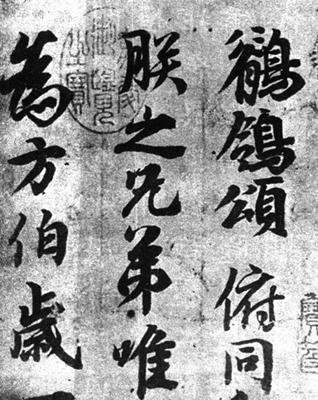 鶺鴒頌 俯同
朕之兄弟唯
為方伯歲